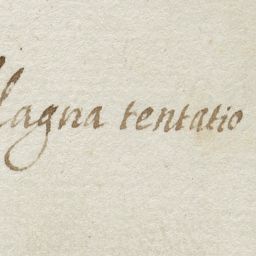 lagna tentatio